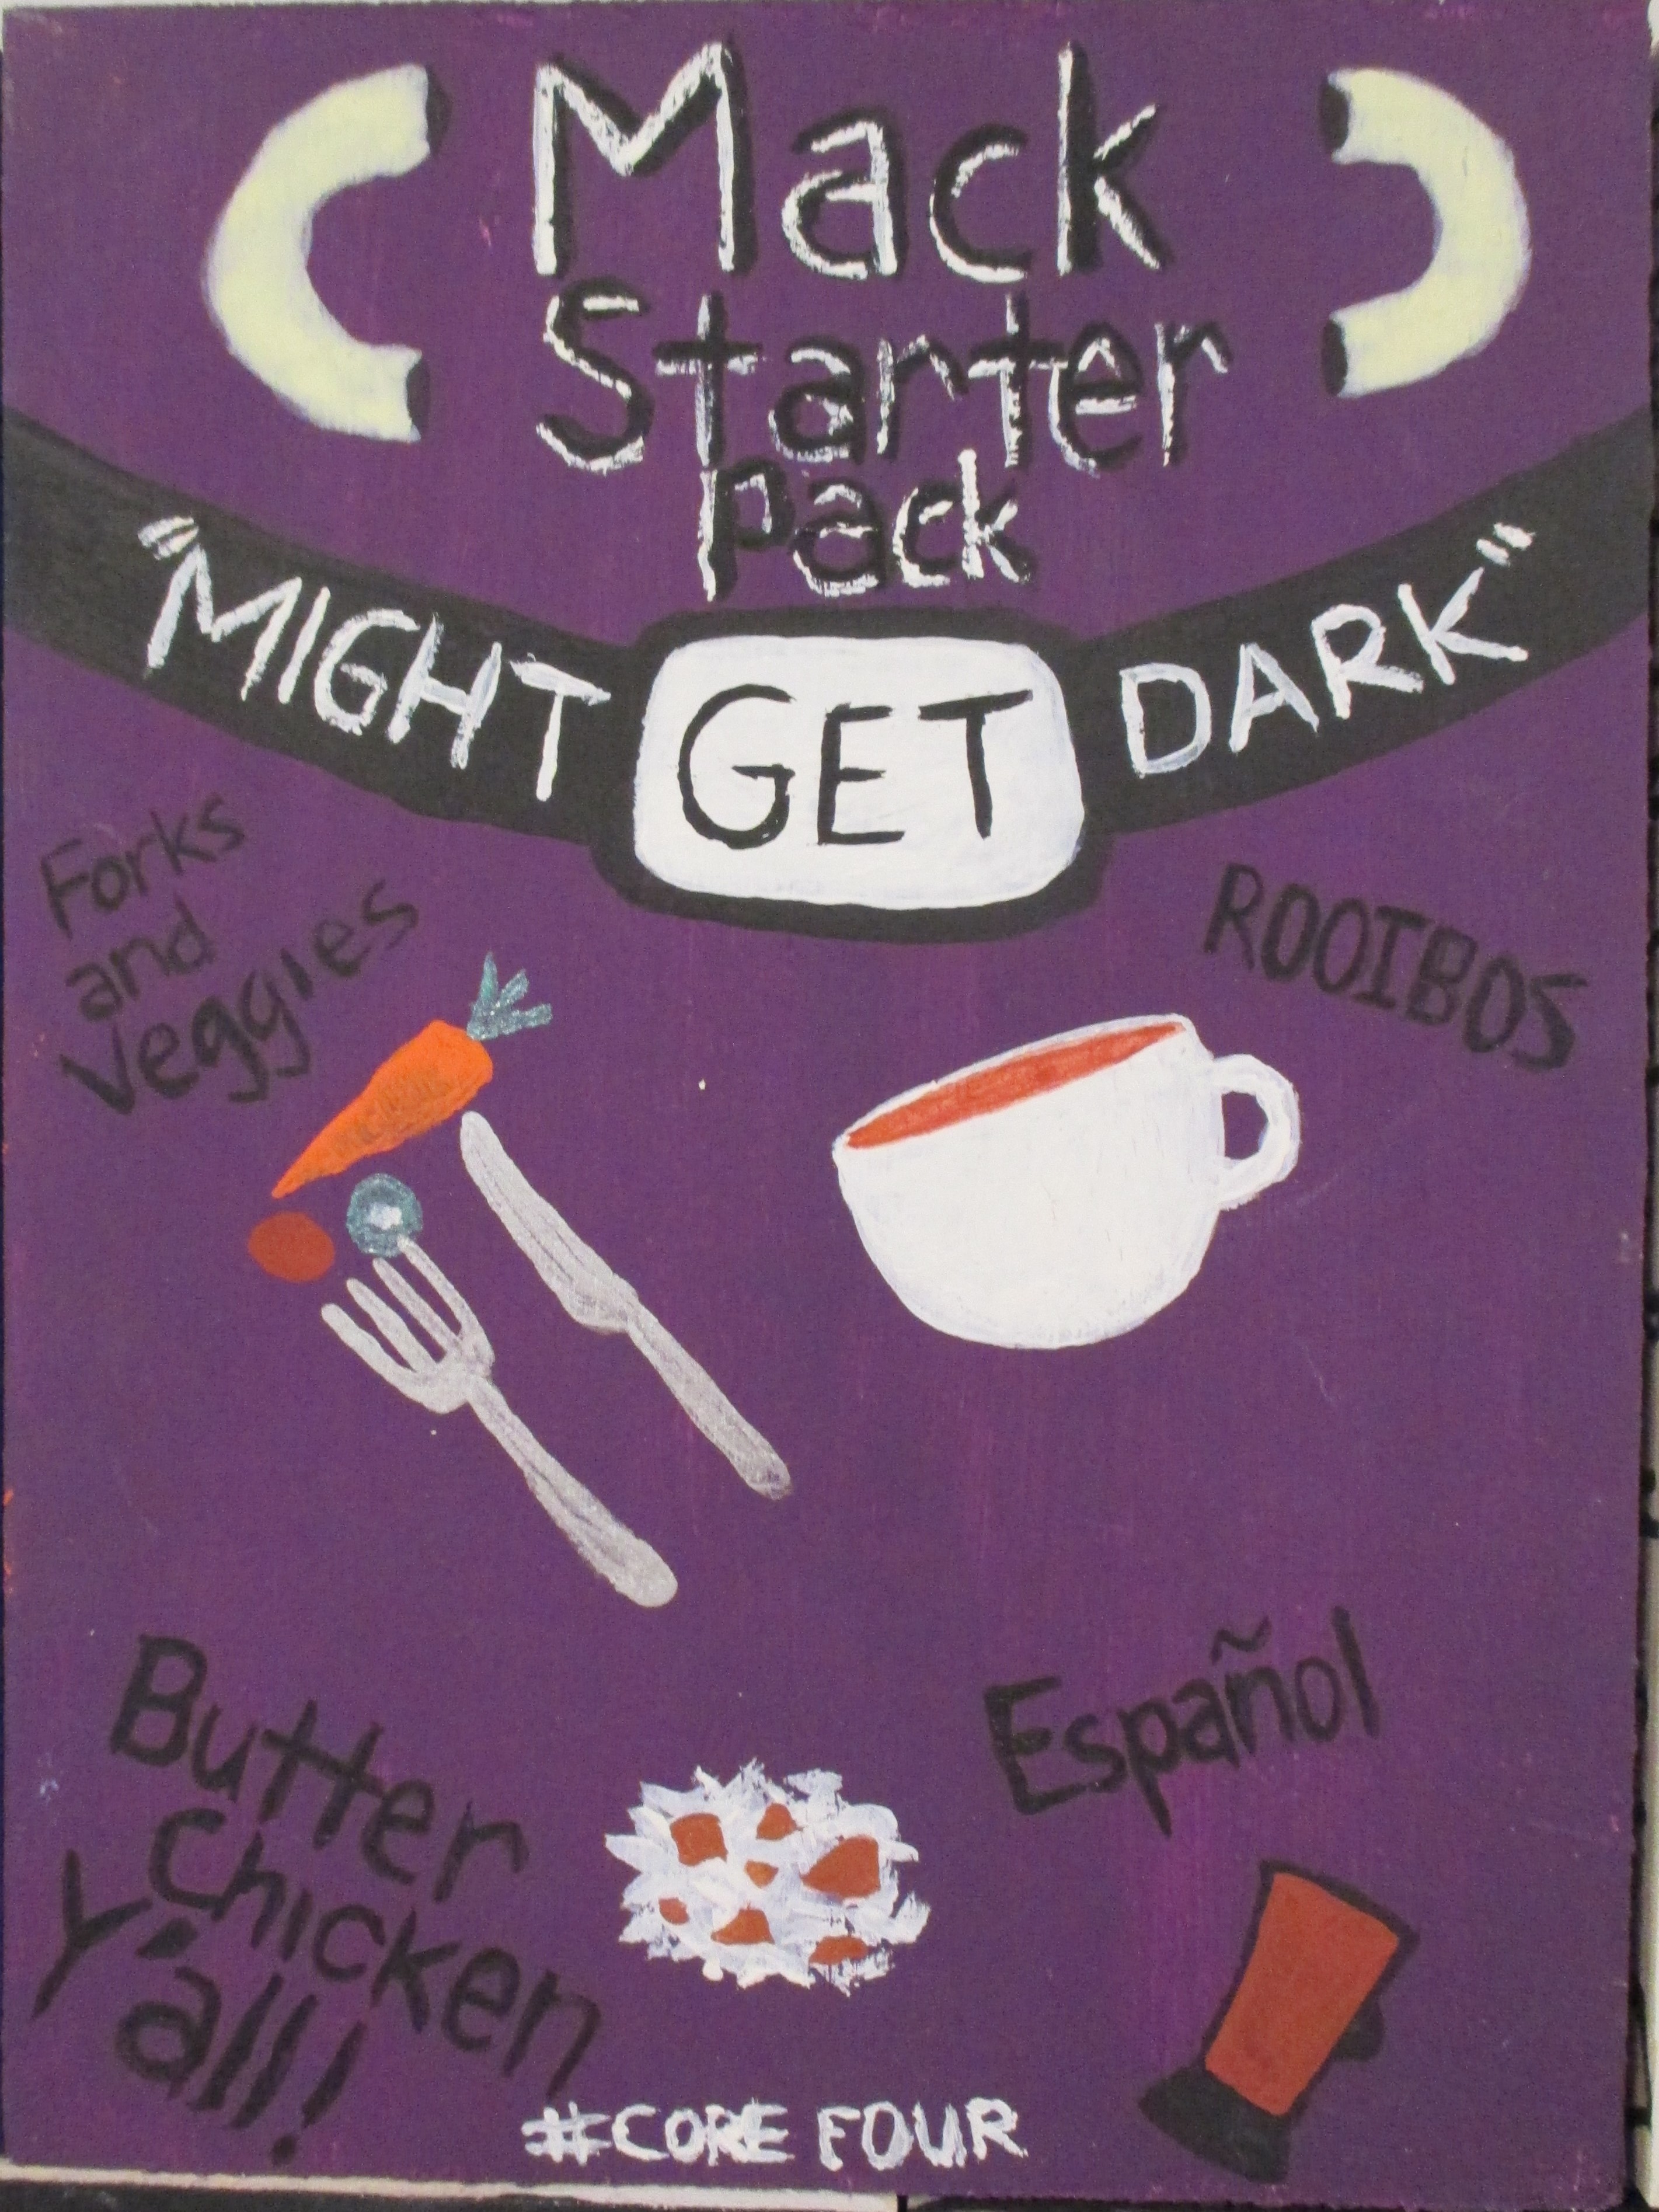 Mack
Starter
Pack
"MIGHT GET DARK"
Forks
and
Veggies
ROOIBOS
Butter
Chicken
Y'all!
Español
#CORE FOUR